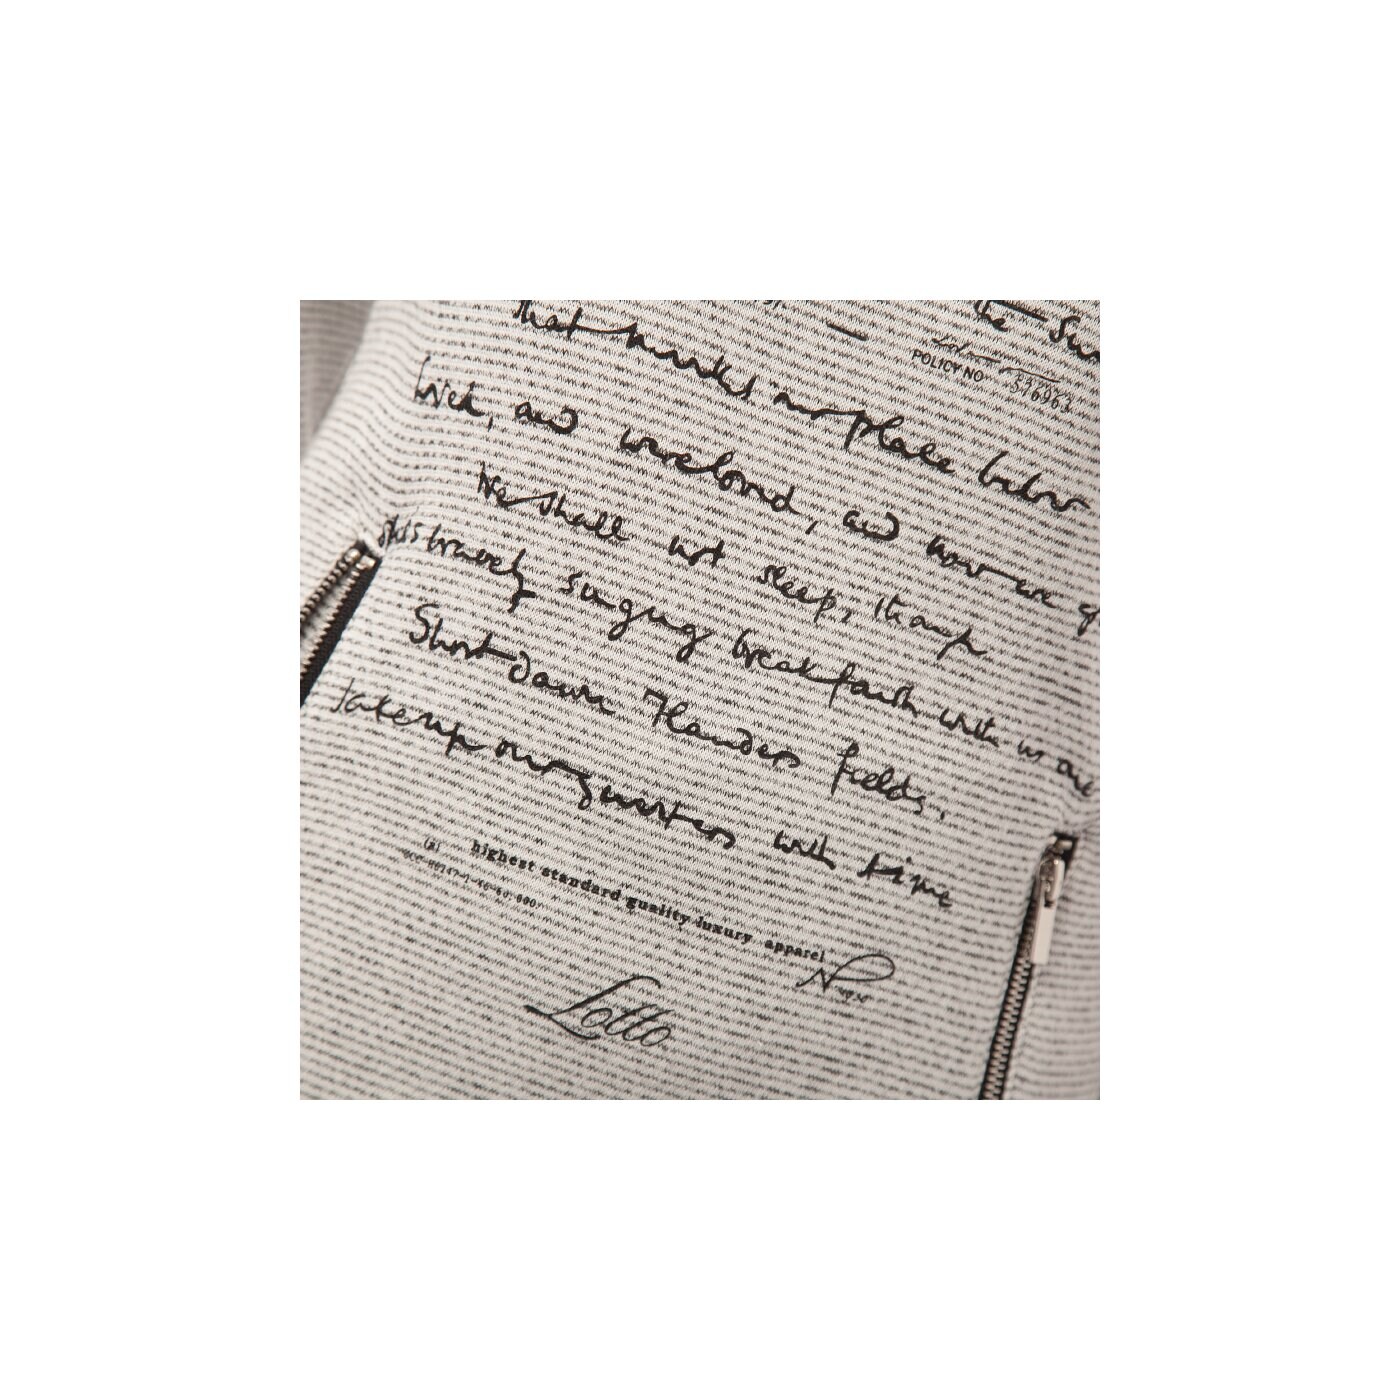 the Sun
POLICY NO 576963
that marks our place below
lived, and were loved, and now we
We shall not sleep, though
bravely singing break faith with us
Short dawn Flanders fields.
Take up our quarters with time
(a) highest standard quality luxury apparel
Lotto